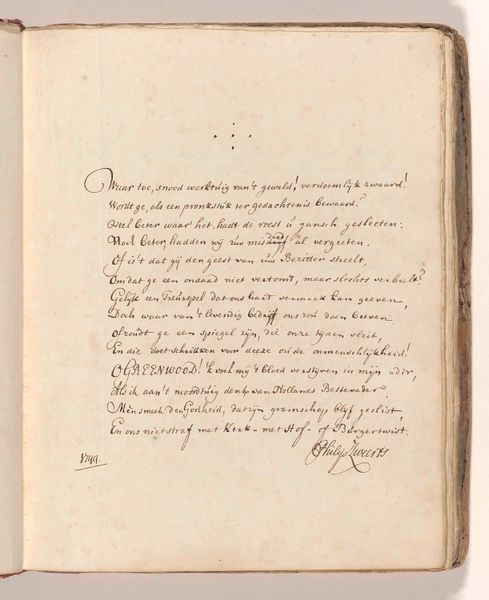 Waar toe, snood werktuig van't geweld! verdoemlijk zwaard!
Wordt ge, als een pronkstuk ter gedachtenis bewaard?
Veel beter waar het, hadt de roest u gansch gesleeten:
Noch beter, hadden wij uw misdaad al vergeeten.
Of is't dat gij den geest van uw Bezitter streelt,
Omdat ge een ondaad niet vertoont, maar slechts verbeelt?
Gelijk een Treurspel dat ons hart vermaak kan geeven,
Doch waar van't levendig bedrijf ons zou doen beeven.
Of zoudt ge een spiegel zijn, die onze tijden vleit,
En die doet schrikken voor deeze oude onmenschlijkheid!
O GREENWOOD! 'k voel mij 't bloed verstijven in mijn ader,
Als ik aan't moordtuig denk van Hollands Bestevader
Men smeek' den Godheid, dat zijn gramschap blijf geslist,
En ons niet straf met Kerk- met Hof- of Burgertwist.
Philip Zweerts
1744.